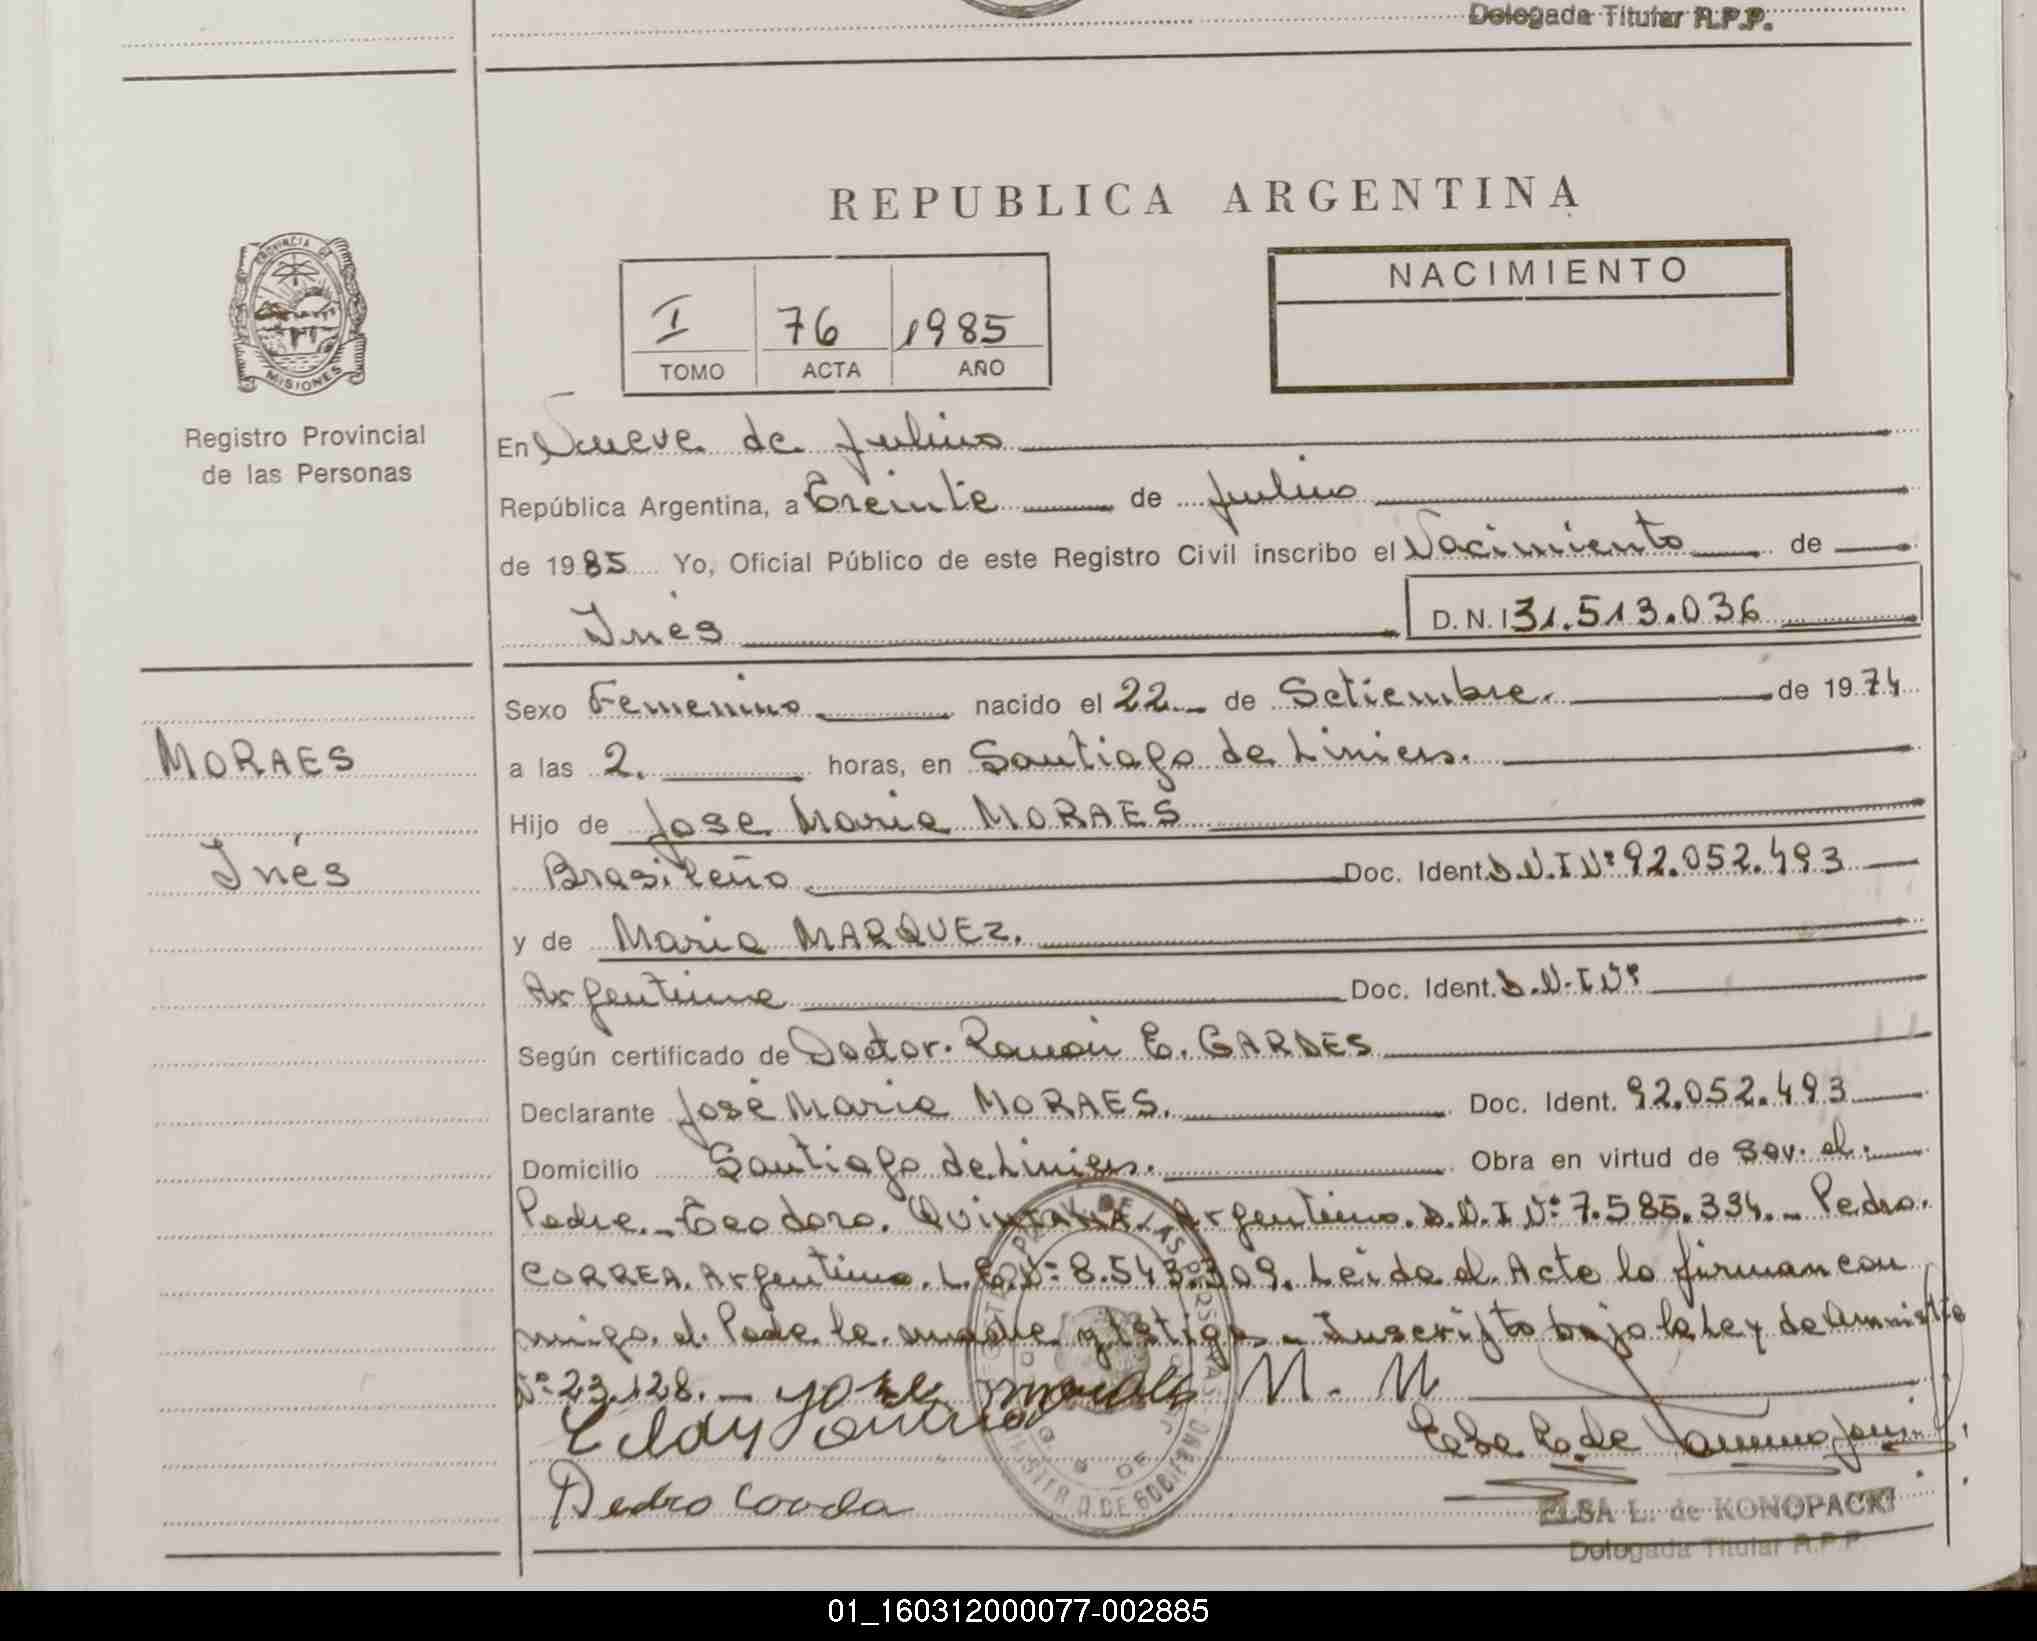 Delegada Titular R.P.P.
REPUBLICA ARGENTINA
PROVINCIA DE
MISIONES
Registro Provincial
de las Personas
I 76 1985
TOMO ACTA AÑO
NACIMIENTO
En Nueve de Julio
República Argentina, a treinta de Julio
de 1985 Yo, Oficial Público de este Registro Civil inscribo el Nacimiento de
Inés
D.N.I 31.513.036
Sexo Femenino nacido el 22 de Setiembre. de 1974
MORAES
a las 2. horas, en Santiago de Liniers.
Hijo de Jose Maria MORAES
Inés
Brasileño Doc. Ident. D.N.I Nº 92.052.493
y de Maria MARQUEZ.
Argentina Doc. Ident. D.N.I Nº
Según certificado de Doctor. Ramón E. GARDES
Declarante José Maria MORAES. Doc. Ident. 92.052.493
Domicilio Santiago de Liniers. Obra en virtud de Ser. el.
Padre. Teodoro. QUINTANA. Argentino. D.N.I Nº 7.585.334. Pedro.
CORREA. Argentino. L.E. Nº 8.543.309. Leida el Acta la firman con
migo. el Padre la madre y testigos Inscripto bajo la Ley de Amnistia
Nº 23.128. José moraes M. M
Pedro
Elsa L. de
ELSA L. de KONOPACKI
Delegada Titular R.P.P.
01_160312000077-002885